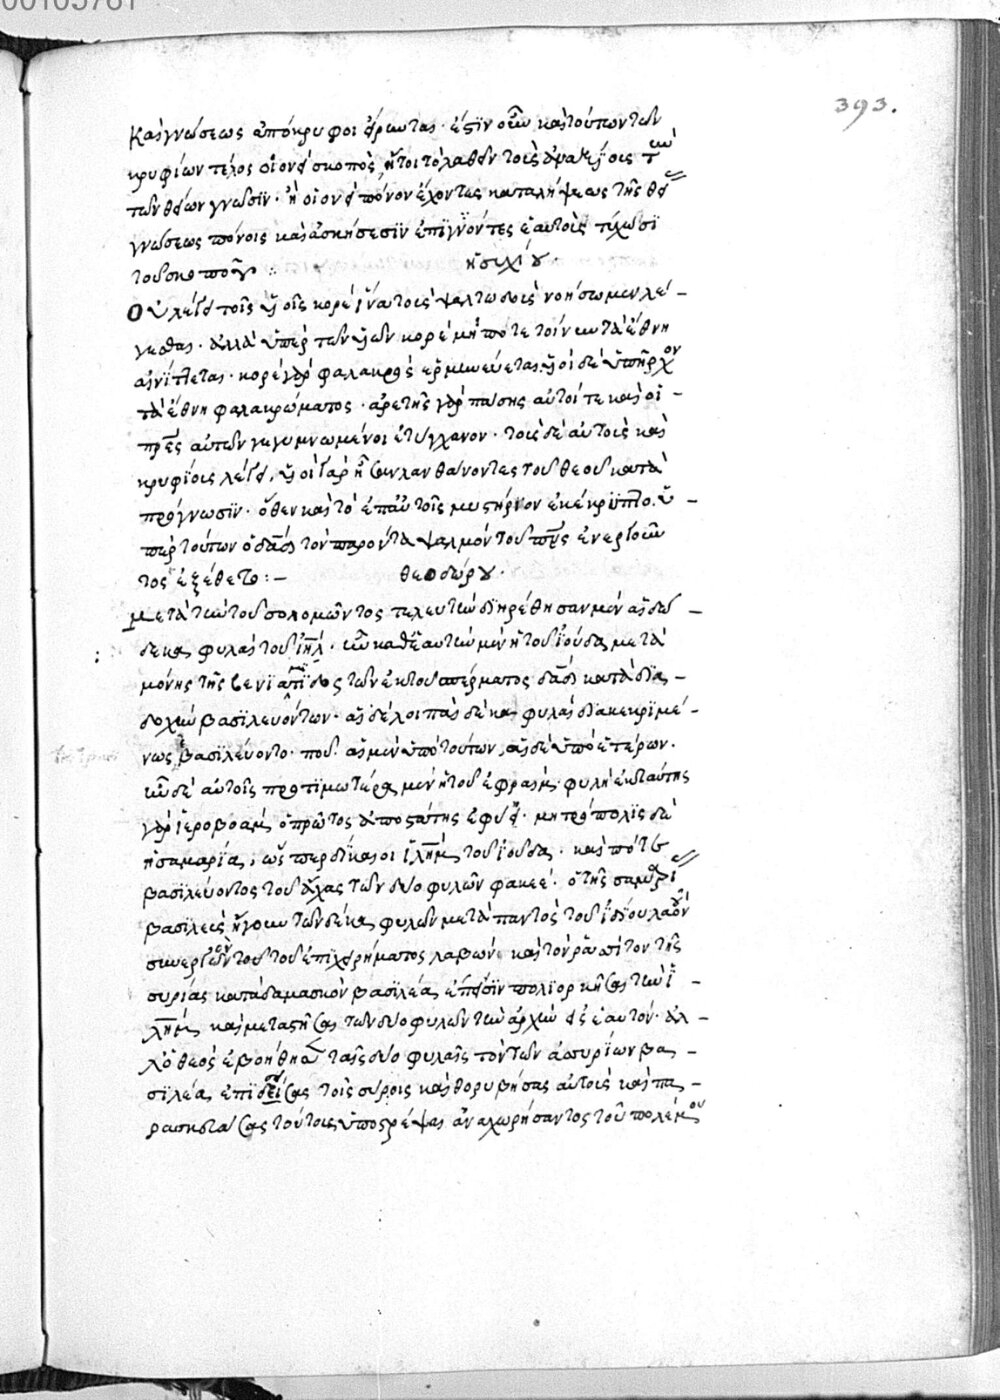 00105781
393.
καὶ γνώσεως ἀπόκρυφοι ἔρωτας· ἐστὶν οὖν καὶ τούτων τῶν
κρυφίων τέλος οἱονεὶ σκοπὸς, ἤτοι τὸ λαθεῖν τοὺς ἀναξίους τὴν
τῶν θείων γνῶσιν· ἢ οἱονεὶ πόνον ἔχοντες καταλήψεως τῆς θεί
γνώσεως πόνοις καὶ ἀσκήσεσιν
τοῦ σκοποῦ :· ἡσυχίου·
Οὐ λέγει τοῖς υἱοῖς κορέ ἵνα τοὺς ψαλτωδοὺς νοήσωμεν λέ-
γεσθαι· ἀλλὰ ὑπὲρ τῶν υἱῶν κορέ μήποτε τοίνυν τὰ ἔθνη
αἰνίττεται· κορέ γὰρ φαλακρὸς ἑρμηνεύεται, υἱοὶ δὲ ὑπῆρχον
τὰ ἔθνη φαλακρώματος· ἀρετῆς γὰρ πάσης αὐτοί τε καὶ οἱ
πρες αὐτῶν γεγυμνωμένοι ἐτύγχανον· τοὺς δὲ αὐτοὺς καὶ
κρυφίους λέγει, υἱοὶ γὰρ ἦσαν λανθάνοντες τοῦ θεοῦ κατὰ
πρόγνωσιν· ὅθεν καὶ τὸ ἐπ' αὐτοῖς μυστήριον ἐκέκρυπτο· ὑ-
πὲρ τούτων ὁ δαδ τὸν παρόντα ψαλμὸν τοῦ πνς ἐνεργοῦν
τος ἐξέθετο :- θεοδώρου·
Μετὰ τὴν τοῦ σολομῶντος τελευτὴν διῃρέθησαν μὲν αἱ δώ-
δεκα φυλαὶ τοῦ ιηλ· ὧν καθ' ἑαυτὴν μὲν ἡ τοῦ ἰούδα μετὰ
μόνης τῆς βενιαμίτιδος τῶν ἐκ τοῦ σπέρματος δαδ κατὰ δια-
δοχὴν βασιλευόντων· αἱ δὲ λοιπαὶ δέκα φυλαὶ διακεκριμέ-
νως ἐβασιλεύοντο· ποτὲ αἱ μὲν ὑπὸ τούτων, αἱ δὲ ὑπὸ ἑτέρων·
ἦν δὲ αὐτοῖς προτιμωτέρα μὲν ἡ τοῦ ἐφραΐμ· φυλὴ ἐκ ταύτης
γὰρ ἱεροβοὰμ ὁ πρῶτος ἀποστάτης ἐφύη· μητρόπολις δὲ
ἡ σαμαρία, ὥσπερ δίκαιοι ιλημ τοῦ ἰούδα· καί ποτε
βασιλεύοντος τοῦ ἄχας τῶν δύο φυλῶν φακεέ· ὁ τῆς σαμαρεί
βασιλεὺς ἤγουν τῶν δέκα φυλῶν μετὰ παντὸς τοῦ ἰδίου λαοῦ
συνεργὸν τοῦ τοῦ ἐπιχειρήματος λαβὼν καὶ τὸν ῥαασὶ τὸν τῆς
συρίας κατὰ δαμασκὸν βασιλέα, ἐπῄεσιν πολιορκῆσαι τὴν ι-
λημ καὶ μεταστῆσαι τῶν δύο φυλῶν τὴν ἀρχὴν εἰς ἑαυτόν· ἀλ-
λ' ὁ θεὸς ἐβοήθησε ταῖς δύο φυλαῖς τὸν τῶν ἀσσυρίων βα-
σιλέα, ἐπιδείσας τοῖς σύροις καὶ θορυβήσας αὐτοὺς καὶ πα-
ρασκευάσας τούτους ὑποστρέψαι ἀναχωρήσαντος τοῦ πολέμου